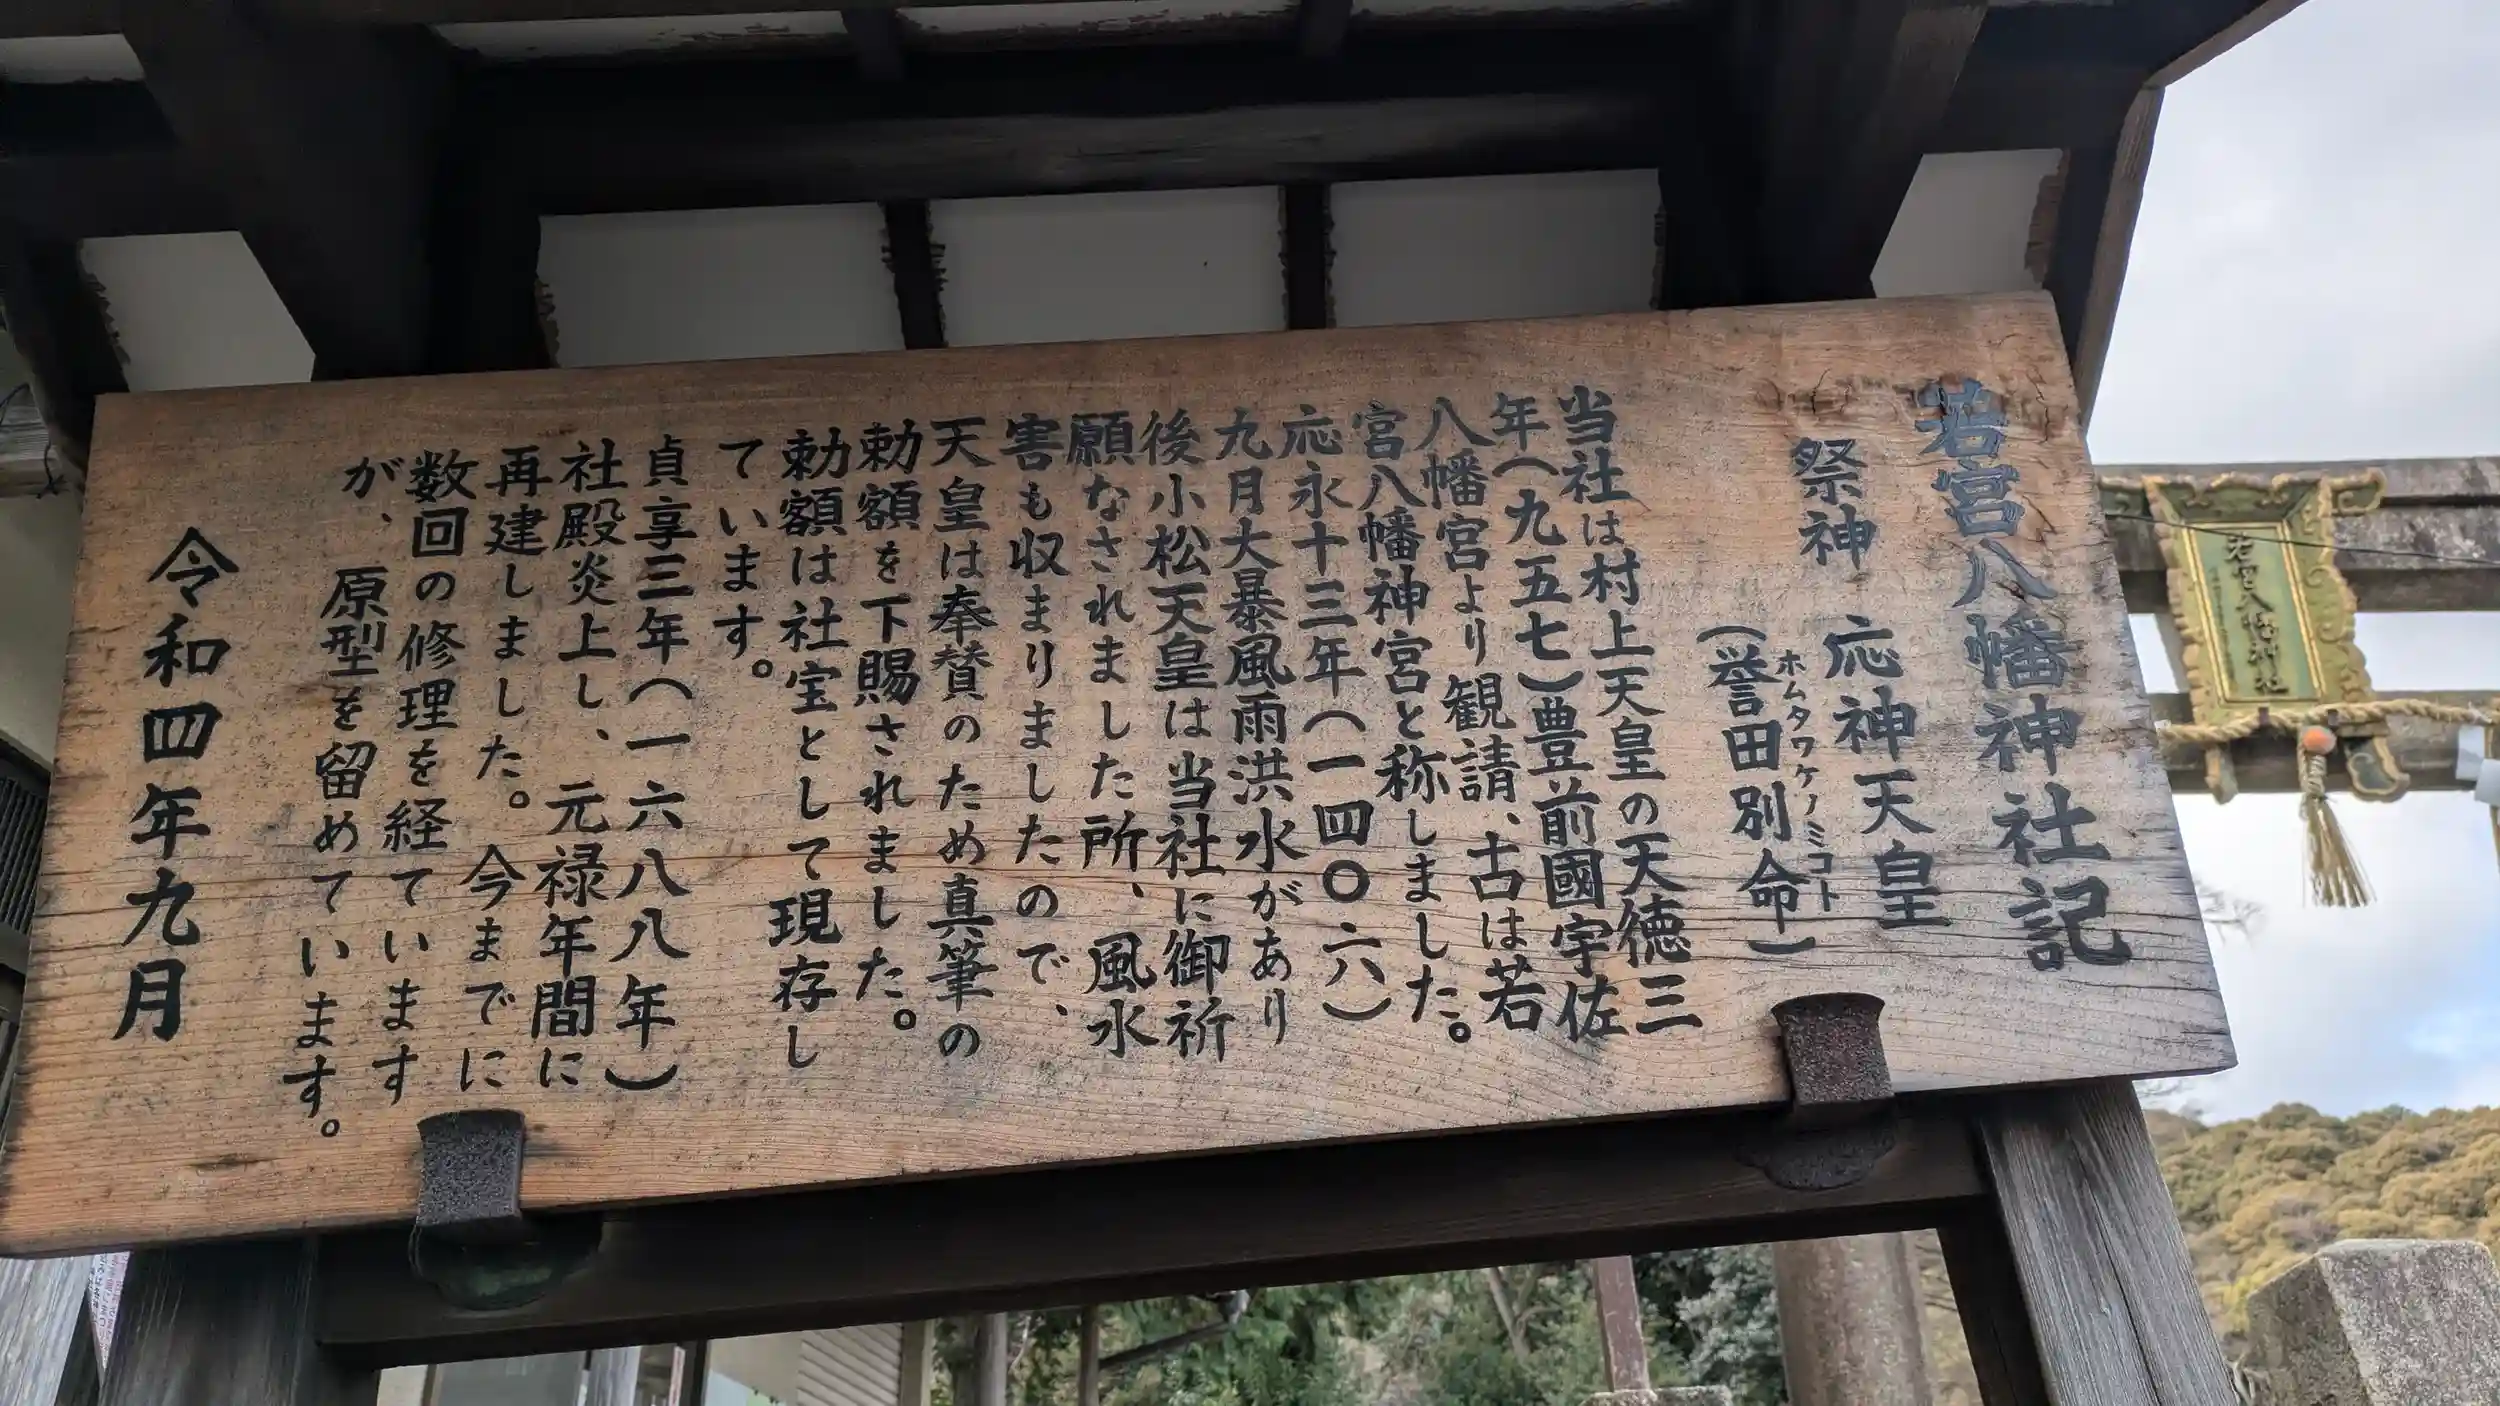 若宮八幡神社記
祭神 応神天皇
(誉田別命)
ホムタワケノミコト
当社は村上天皇の天徳三
年(九五七)豊前國宇佐
八幡宮より観請、古は若
宮八幡神宮と称しました。
応永十三年(一四〇六)
九月大暴風雨洪水があり
後小松天皇は当社に御祈
願なされました所、風水
害も収まりましたので、
天皇は奉賛のため真筆の
勅額を下賜されました。
勅額は社宝として現存し
ています。
貞享三年(一六八八年)
社殿炎上し、元禄年間に
再建しました。今までに
数回の修理を経ています
が、原型を留めています。
令和四年九月
若宮八幡神社